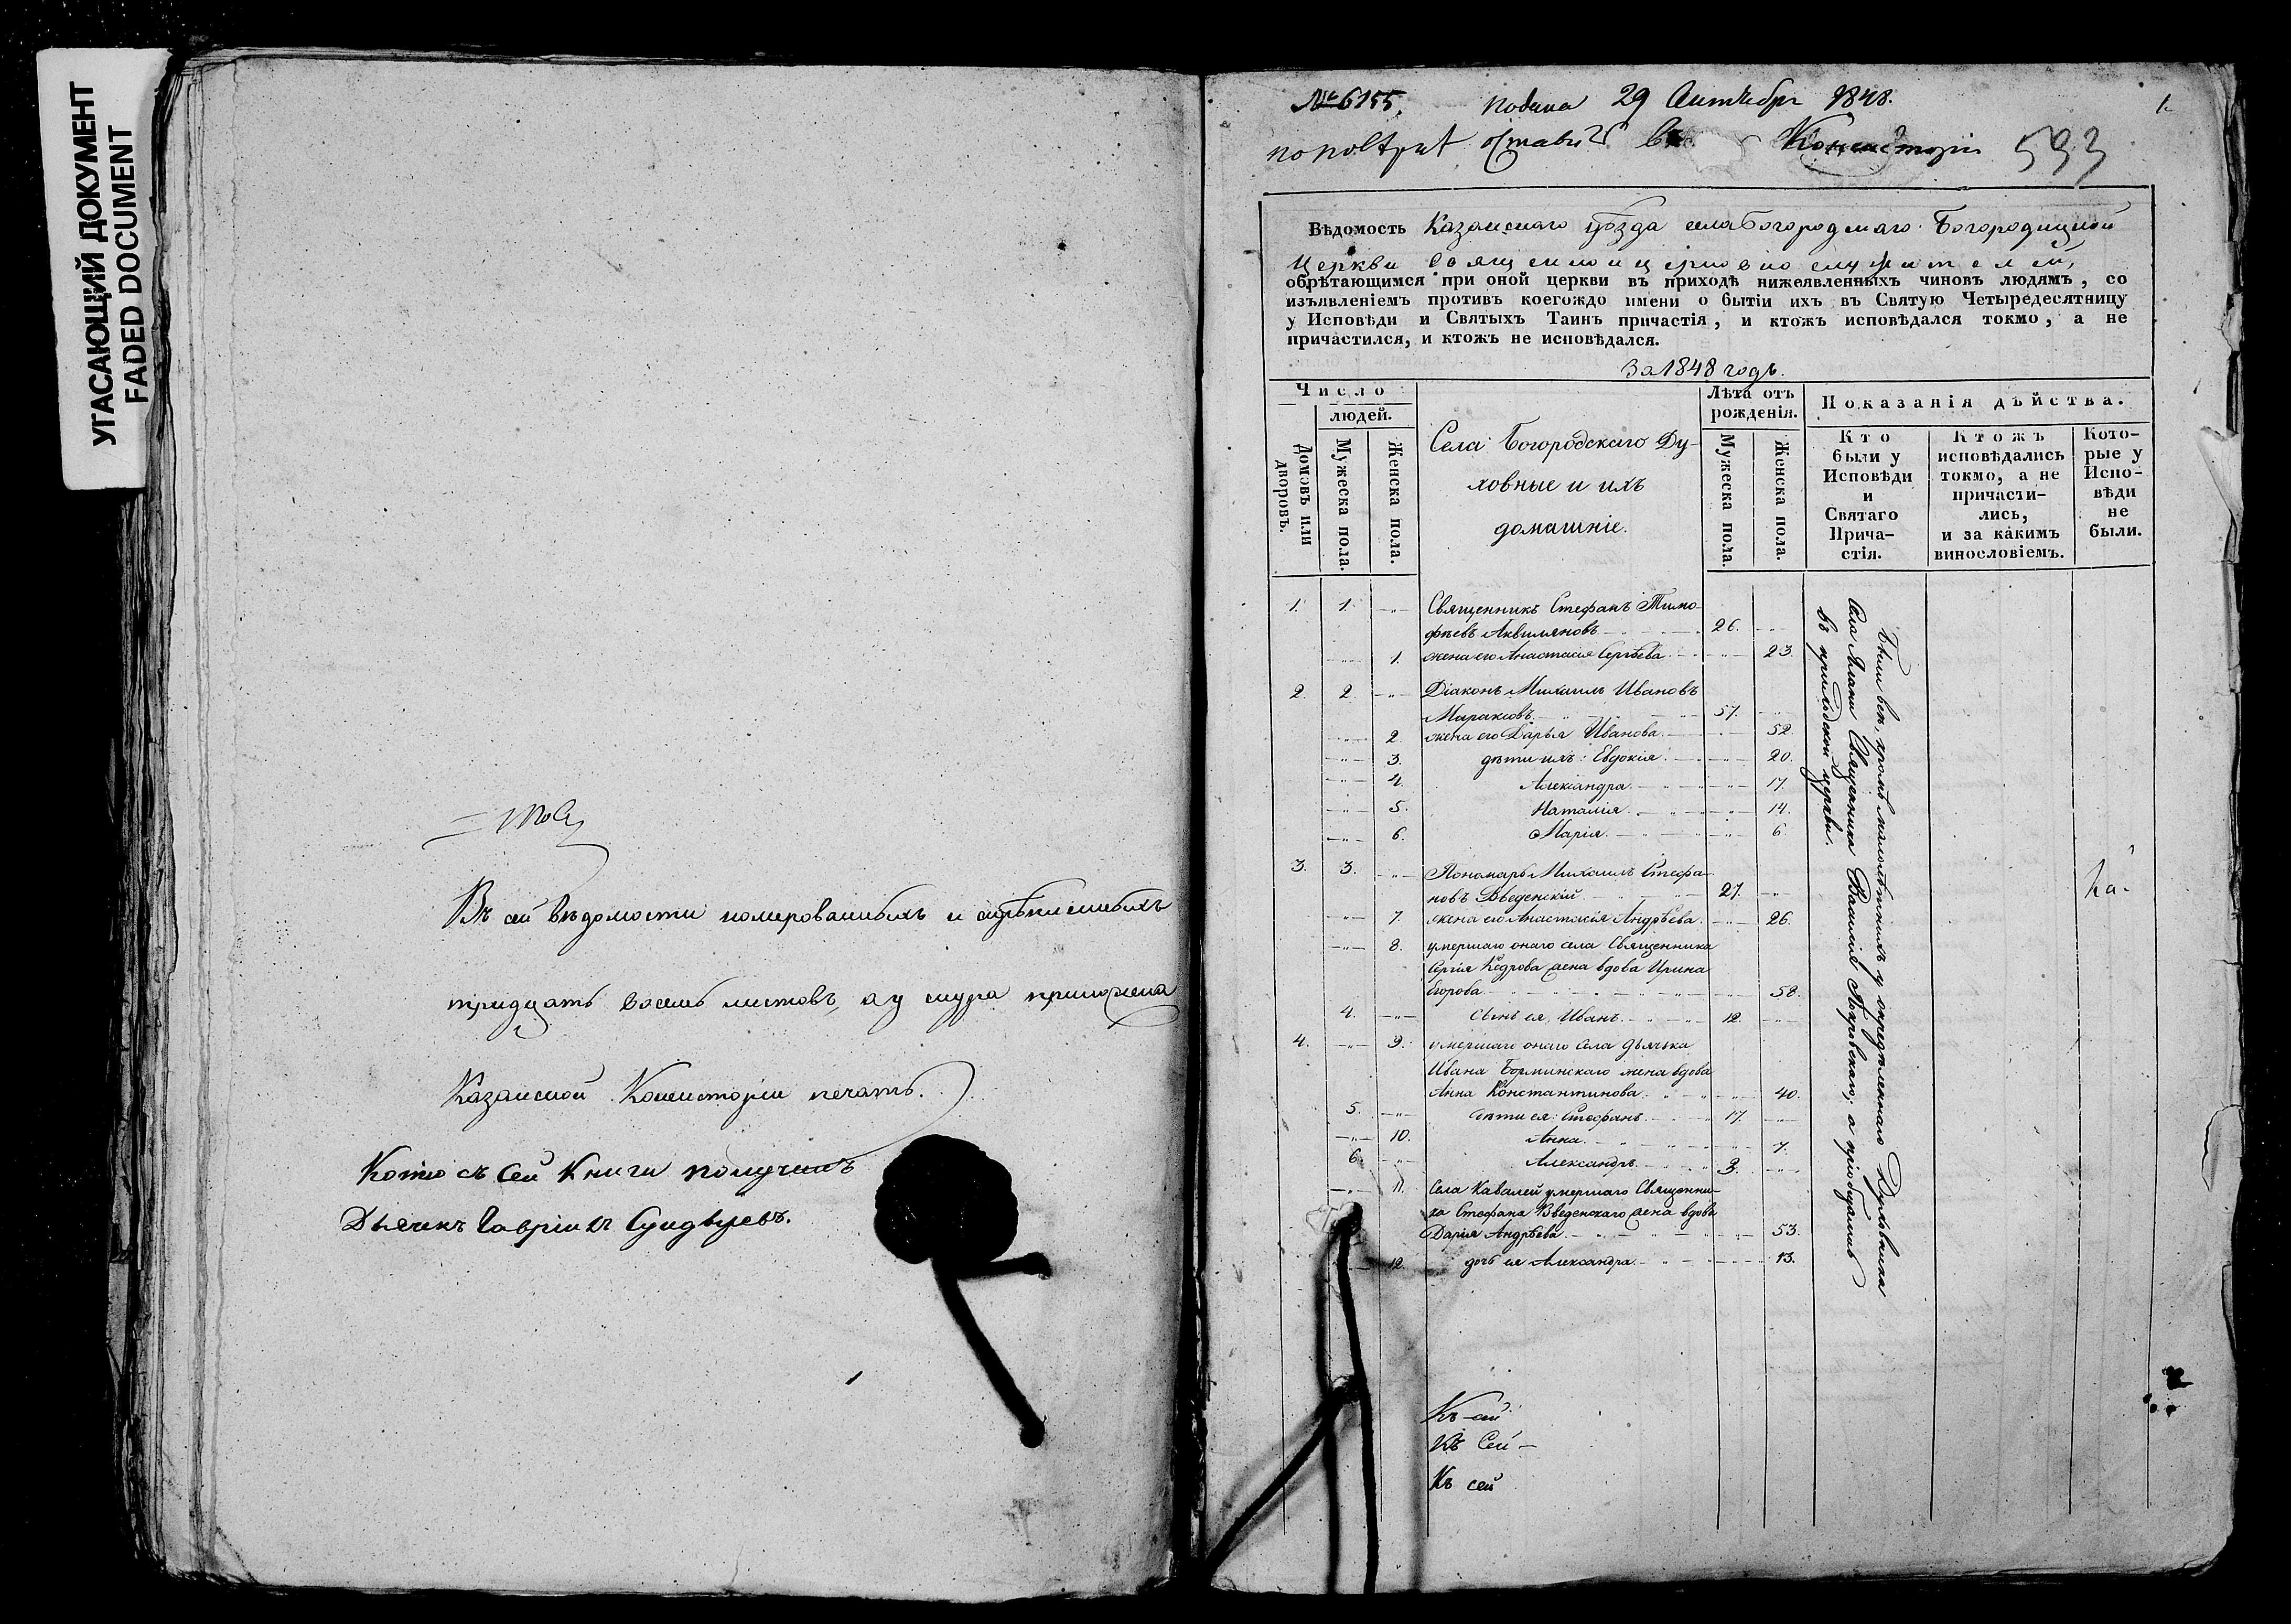 УГАСАЮЩИЙ ДОКУМЕНТ
FADED DOCUMENT
Въ сей вѣдомости номерованныхъ и скрѣпленныхъ
тридцать восемь листовъ, а у снура приложена
Казанской Консисторіи печать.
Копію съ сей книги получилъ
Дьячекъ Гавріилъ
№ 6155. подана 29 Сентября 1848.
1.
оставить въ Консисторіи 593
Вѣдомость Казанскаго уѣзда села Богородскаго Богородицкой
Церкви священноицерковнослужителей,
обрѣтающимся при оной церкви въ приходѣ нижеявленныхъ чиновъ людямъ, со
изъявленіемъ противъ коегождо имени о бытіи ихъ въ Святую Четыредесятницу
у Исповѣди и Святыхъ Таинъ причастія, и ктожъ исповѣдался токмо, а не
причастился, и ктожъ не исповѣдался.
За 1848 годъ.
Число
людей.
Домовъ или дворовъ.
Мужеска пола.
Женска пола.
Села Богородскаго Ду-
ховные и ихъ
домашніе.
Лѣта отъ
рожденія.
Мужеска пола.
Женска пола.
Показанія дѣйства.
Кто
были у
Исповѣди
и
Святаго
Прича-
стія.
Ктожъ
исповѣдались
токмо, а не
причасти-
лись,
и за какимъ
винословіемъ.
Кото-
рые у
Испо-
вѣди
не
были.
1. 1. -"- Священникъ Стефанъ Тимо-
фѣевъ Аквиляновъ 26. -"-
-"- 1. жена его Анастасія Сергѣева -"- 23.
2. 2. -"- Діаконъ Михаилъ Ивановъ
Мираковъ 57. -"-
-"- 2. жена его Дарья Иванова -"- 52.
-"- 3. дѣти ихъ: Евдокія -"- 20.
-"- 4. Александра -"- 17.
-"- 5. Наталія -"- 14.
-"- 6. Марія -"- 6
3. 3. -"- Пономарь Михаилъ Стефа-
новъ Введенскій 27. -"-
-"- 7. жена его Анастасія Андрѣева -"- 26.
-"- 8. умершаго онаго села Священника
Сергія Кедрова жена вдова Ирина
Егорова -"- 58.
4. -"- сынъ ея, Иванъ 12. -"-
4. -"- 9. умершаго онаго села дьячька
Ивана Борминскаго жена вдова
Анна Константинова -"- 40.
5. -"- дѣти ея: Стефанъ 17. -"-
-"- 10. Анна -"- 7.
6. -"- Александръ 3. -"-
-"- 11. Села Кавалей умершаго Священни-
ка Стефана Введенскаго жена вдова
Дарія Андрѣева -"- 53.
12. дочь ея Александра -"- 13.
Были всѣ, кромѣ малолѣтнихъ у опредѣленнаго Духовника
Села Священника Василія Покровскаго; а пріобщались
въ приходской церкви.
Къ сей
Къ Сей -
Къ сей